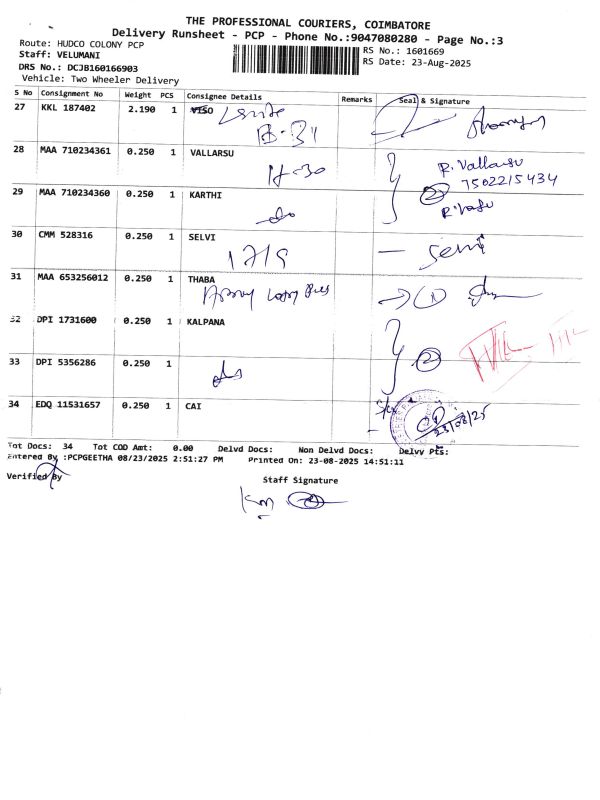 THE PROFESSIONAL COURIERS, COIMBATORE
Delivery Runsheet - PCP - Phone No.:9047080280 - Page No.:3
Route: HUDCO COLONY PCP
Staff: VELUMANI
DRS No.: DCJB160166903
Vehicle: Two Wheeler Delivery
RS No.: 1601669
RS Date: 23-Aug-2025
S No Consignment No Weight PCS Consignee Details Remarks Seal & Signature
27 KKL 187402 2.190 1 VISO
B-31
28 MAA 710234361 0.250 1 VALLARSU
H-30
R. Vallarsu
7502215434
29 MAA 710234360 0.250 1 KARTHI
do
2
30 CMM 528316 0.250 1 SELVI
1719
31 MAA 653256012 0.250 1 THABA
1
32 DPI 1731600 0.250 1 KALPANA
2
33 DPI 5356286 0.250 1
34 EDQ 11531657 0.250 1 CAI
23/08/25
Tot Docs: 34 Tot COD Amt: 0.00 Delvd Docs: Non Delvd Docs: Delvy Pts:
Entered By :PCPGEETHA 08/23/2025 2:51:27 PM Printed On: 23-08-2025 14:51:11
Verified By
Staff Signature